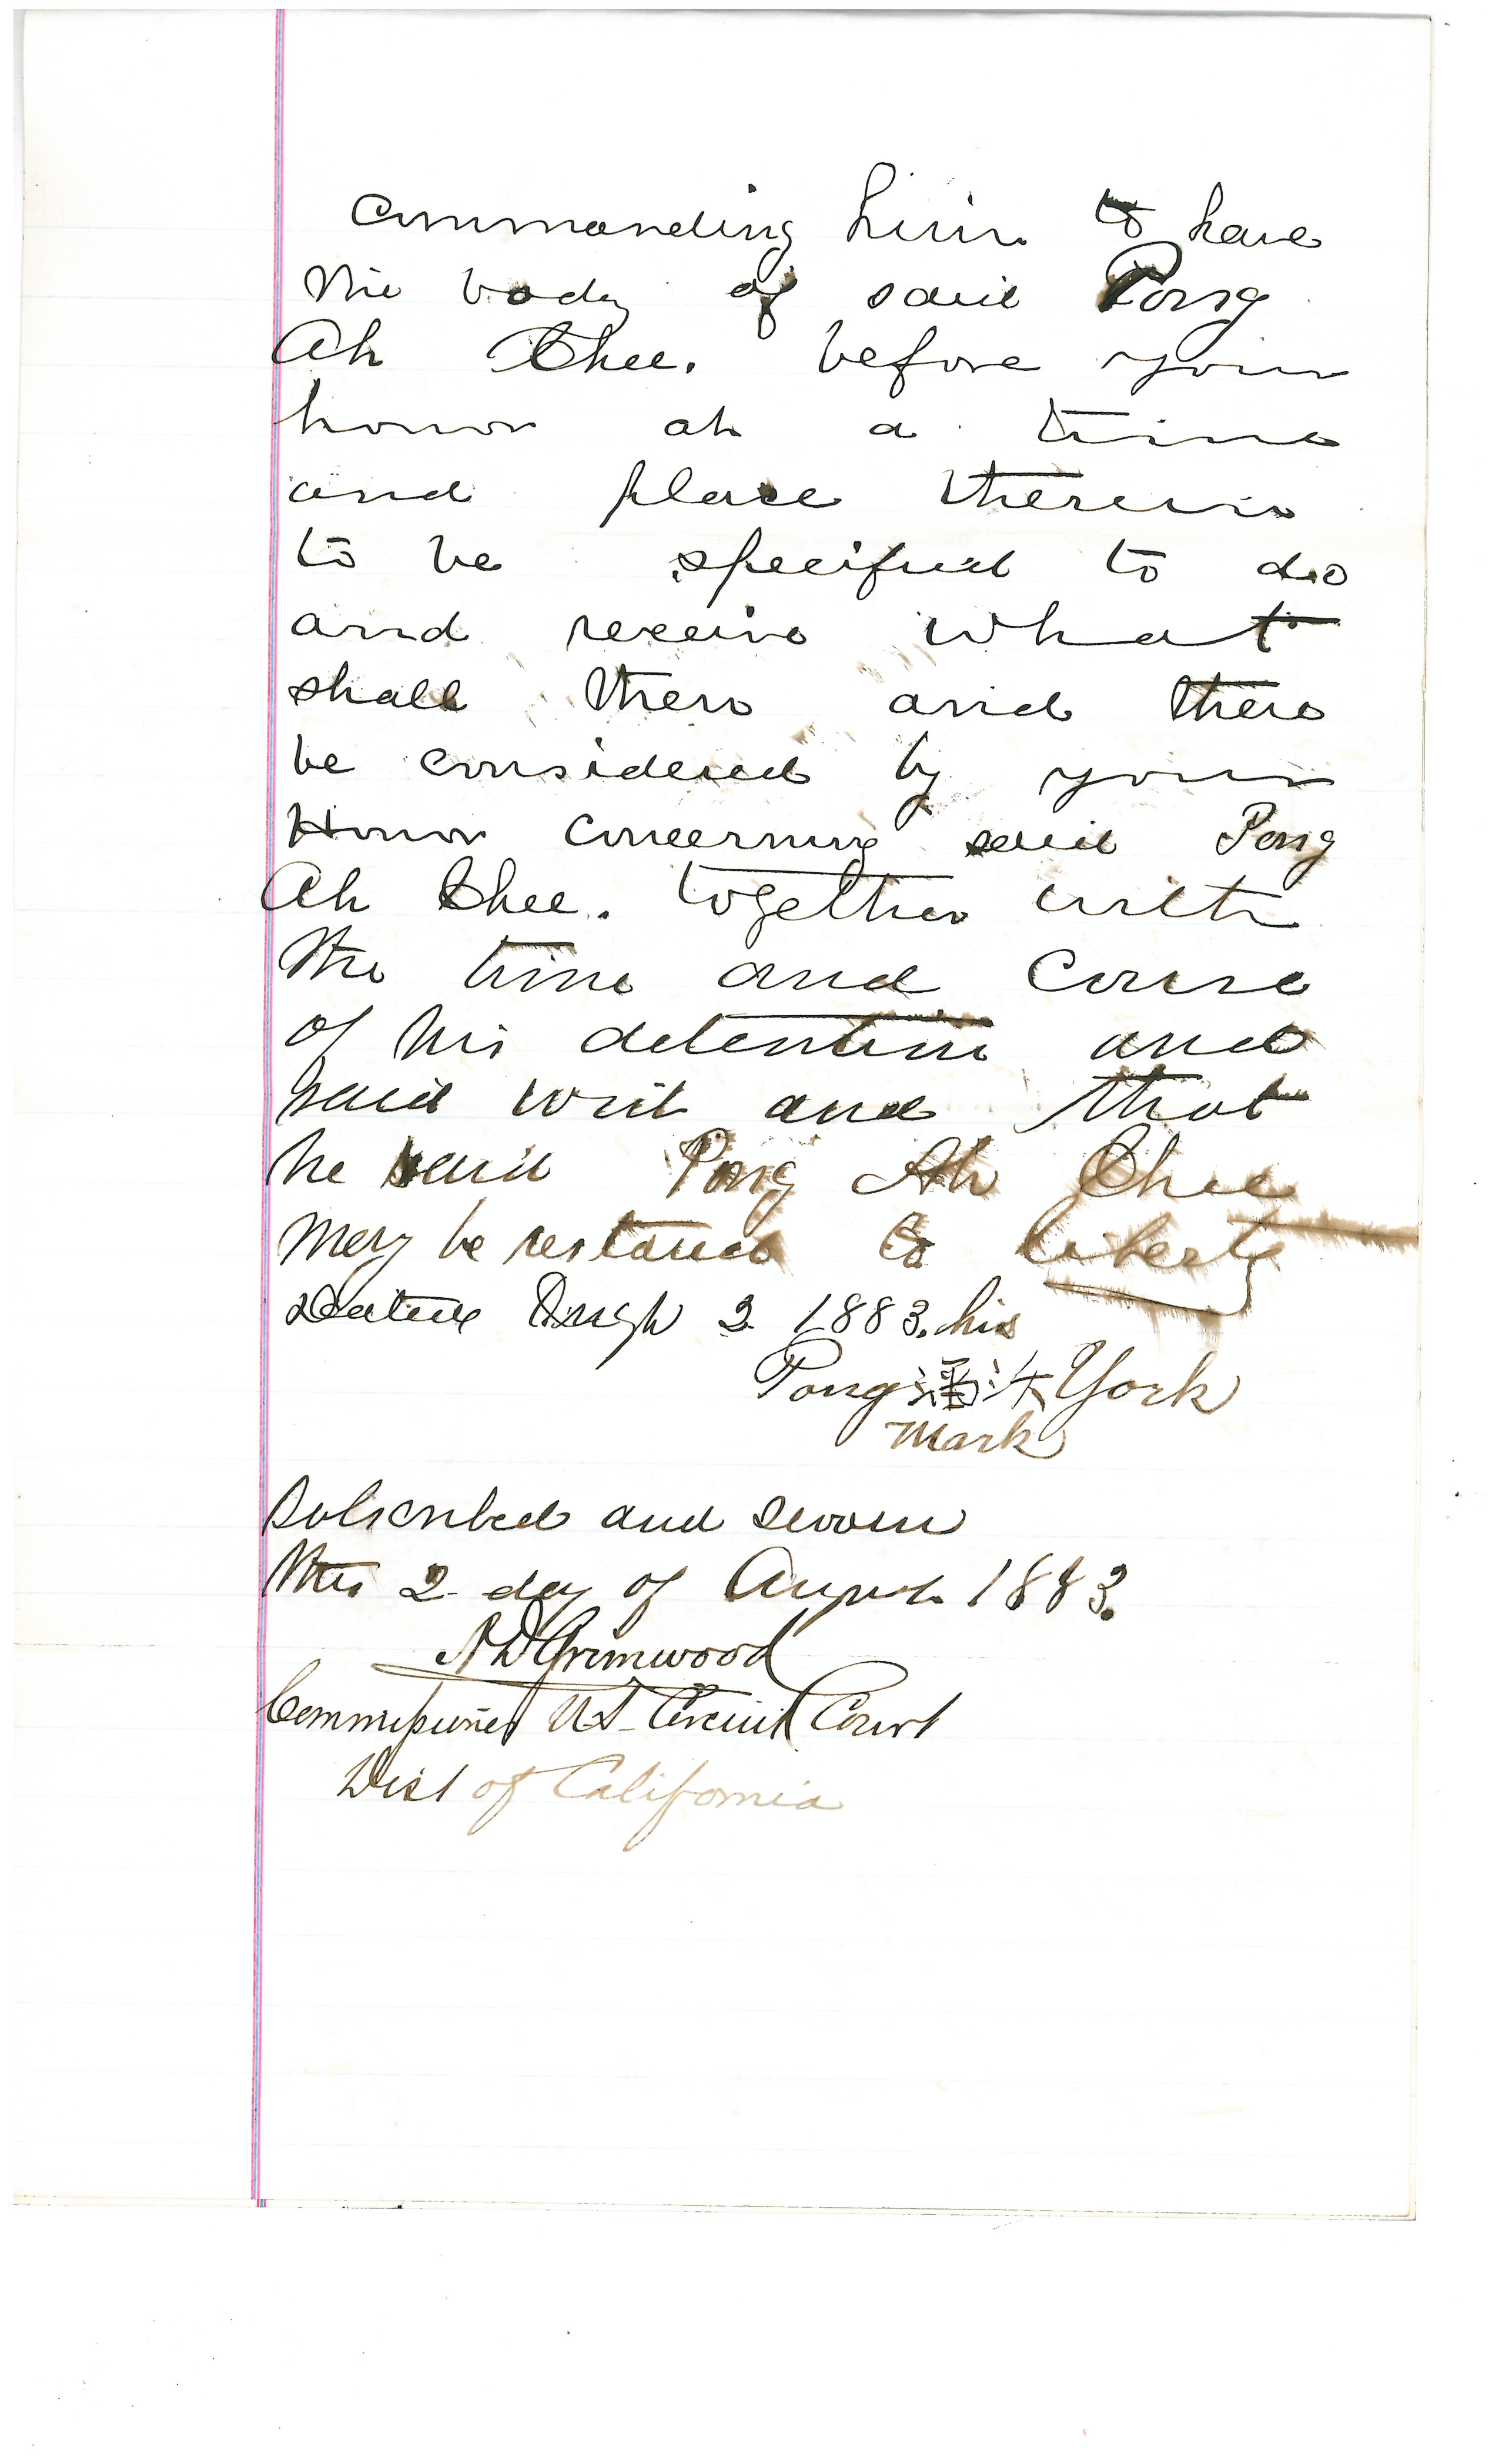 commanding him to have
the body of said Pong
Ah Chee. before your
honor at a time
and place therein
to be specified to do
and receive what
shall then and there
be considered by your
Honor concerning said Pong
Ah Chee. together with
the time and cause
of his detention and
said writ and that
he said Pong Ah Chee
may be restored to liberty
Dated Augt 2 1883. his
Pong York
mark
Subscribed and sworn
this 2 day of August 1883.
Grimwood
Commissioner US Circuit Court
Dist of California